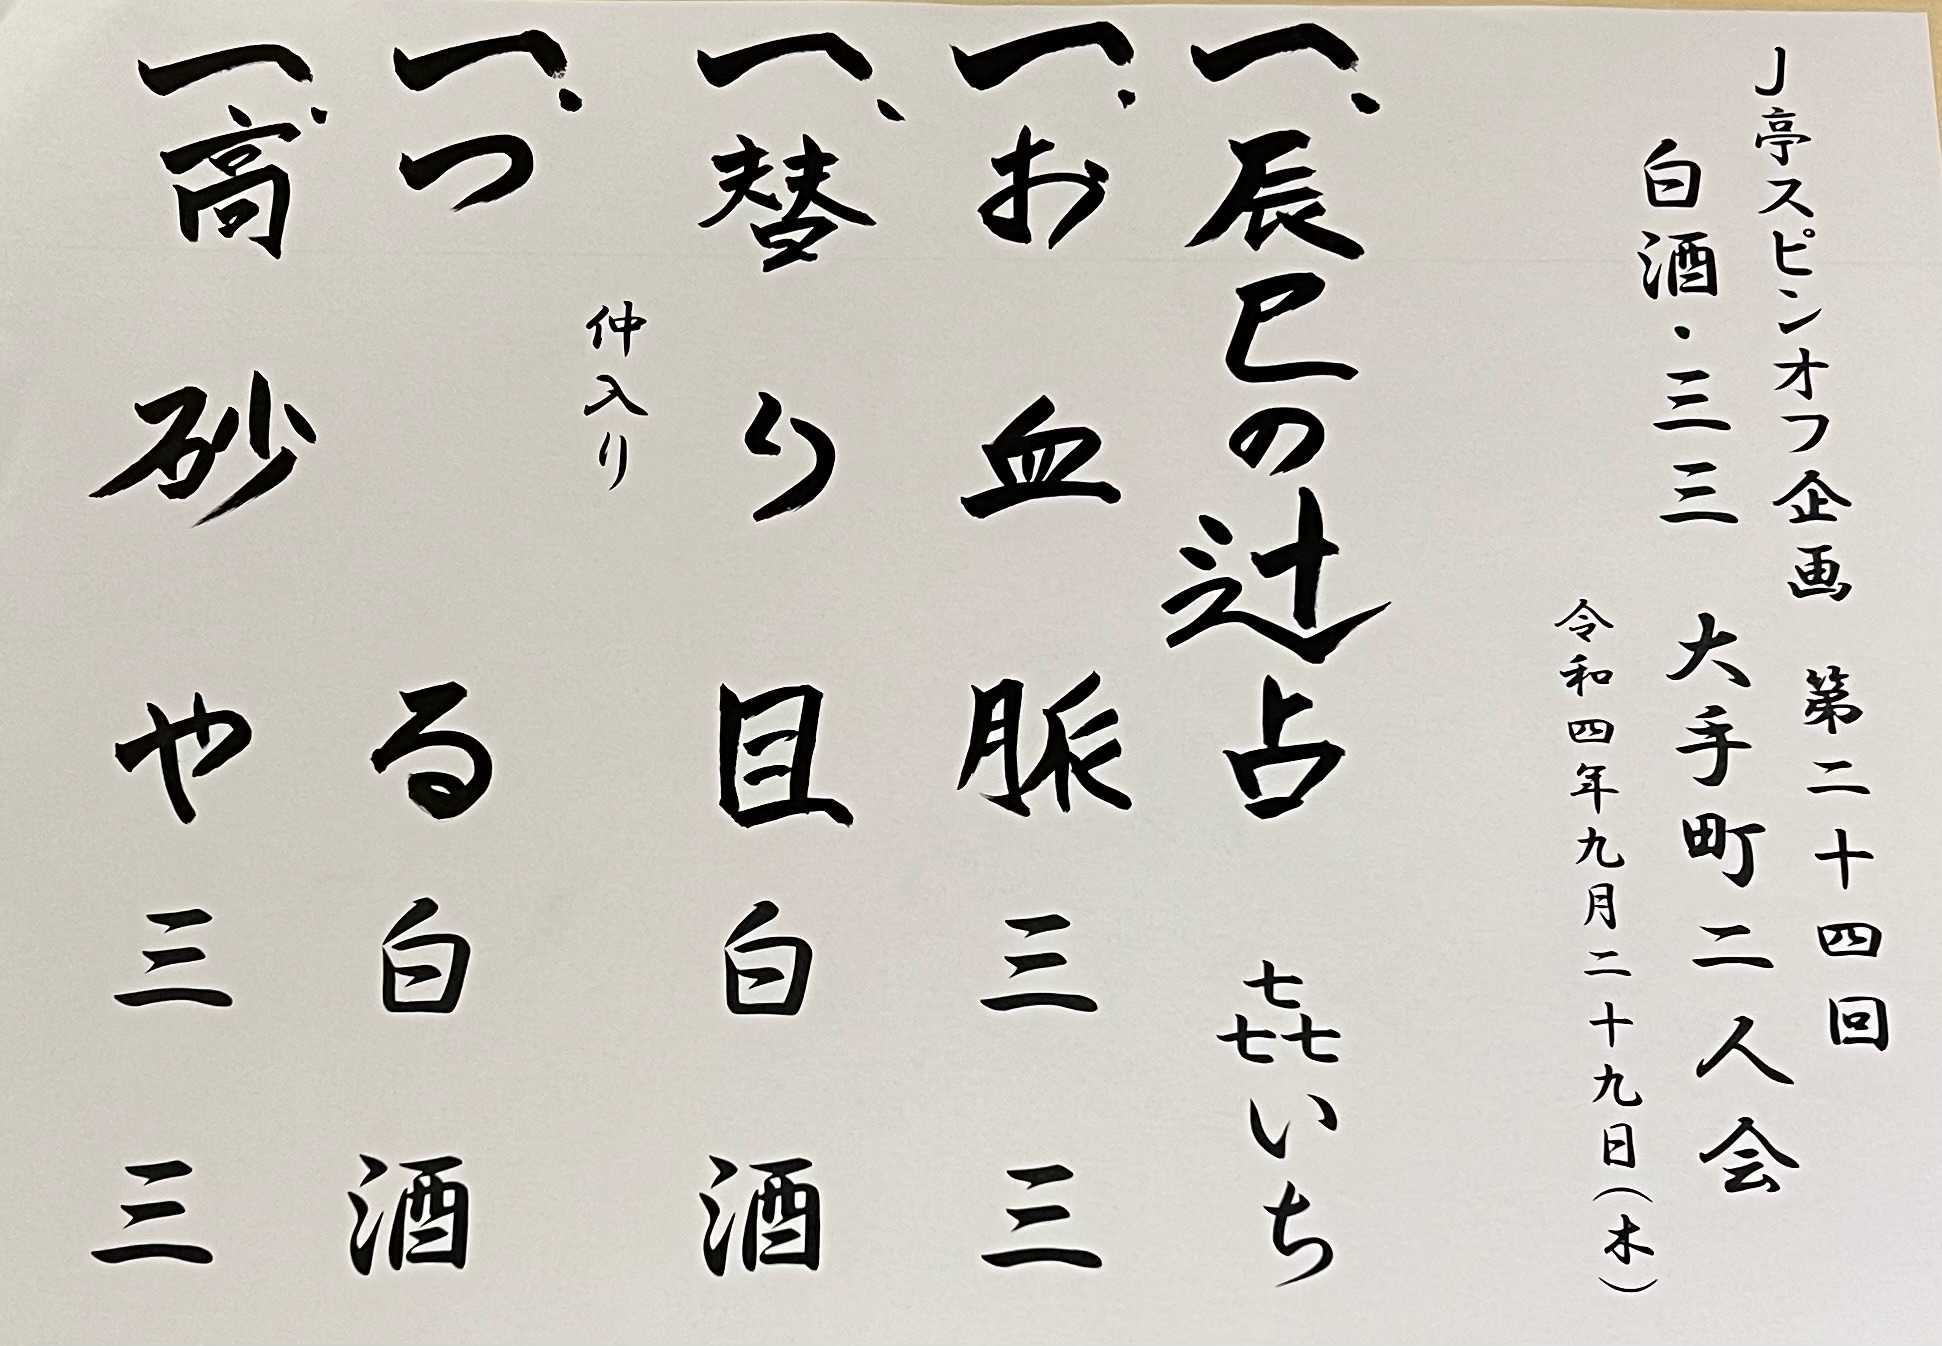 J亭スピンオフ企画 第二十四回
白酒・三三 大手町二人会
令和四年九月二十九日(木)
一、辰巳の辻占 㐂いち
一、お血脈 三三
一、替り目 白酒
仲入り
一、つる 白酒
一、高砂や 三三